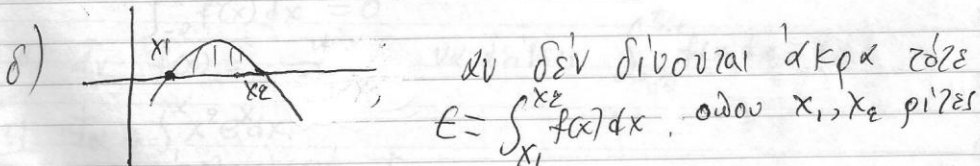 δ) x₁ x₂ , αν δέν δίνονται άκρα τότε
E = ∫_{x₁}^{x₂} f(x)dx . οπου x₁, x₂ ρίζες